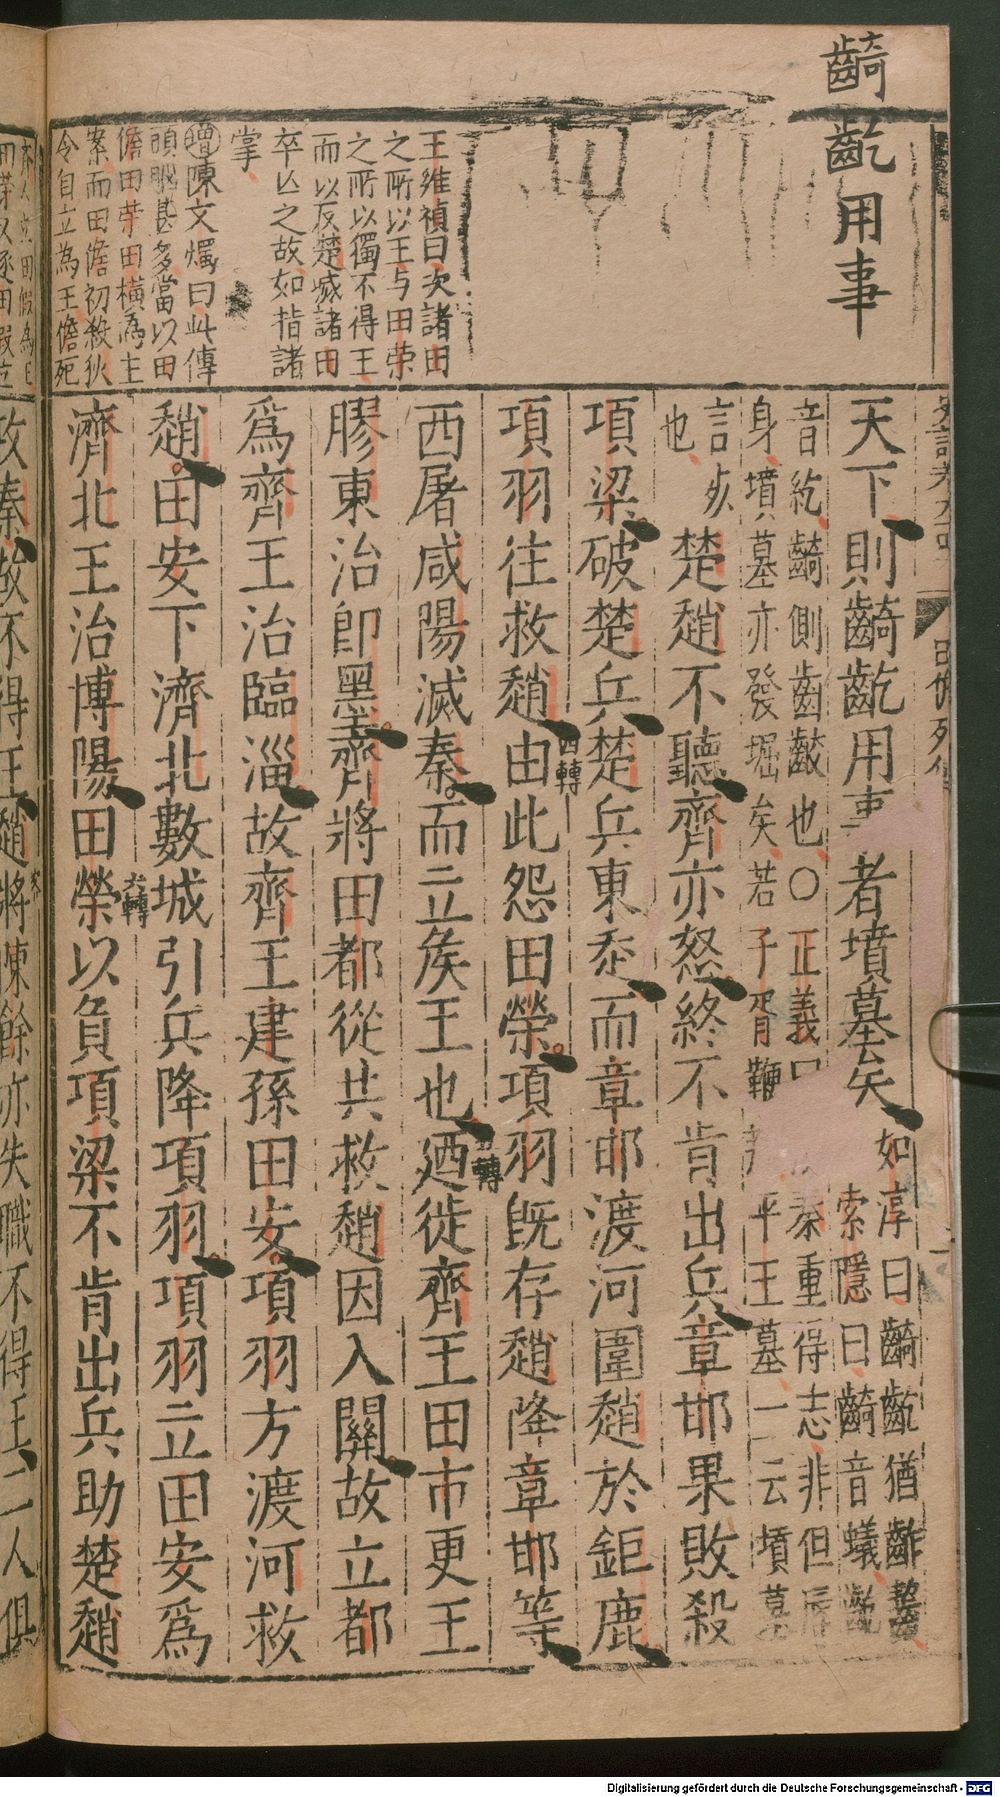 齮齕用事
王維禎曰次諸田
之所以王与田荣
之所以獨不得王
而以反楚喊諸田
卒亾之故如指諸
掌
增陳文燭曰此傳
頭腦甚多當以田
儋田荣田橫為主
案而田儋初殺狄
令自立為王儋死
天下則齮齕用事者墳墓矣
如淳曰齮齕猶齚齧
索隱曰齮音蟻齕
音紇齮側齒齩也〇正義曰
秦重得志非但辱
身墳墓亦發掘矣若子胥鞭
平王墓一云墳墓
言死
也
楚趙不聽齊亦怒終不肯出兵章邯果敗殺
項梁破楚兵楚兵東走而章邯渡河圍趙於鉅鹿
項羽往救趙由此怨田榮項羽既存趙降章邯等
四轉
西屠咸陽滅秦而立矦王也廼徙齊王田市更王
轉
膠東治即墨齊將田都從共救趙因入關故立都
爲齊王治臨淄故齊王建孫田安項羽方渡河救
趙田安下濟北數城引兵降項羽項羽立田安爲
濟北王治博陽田榮以負項梁不肯出兵助楚趙
六轉
故秦故不得王趙將陳餘亦失職不得王二人俱
Digitalisierung gefördert durch die Deutsche Forschungsgemeinschaft - DFG